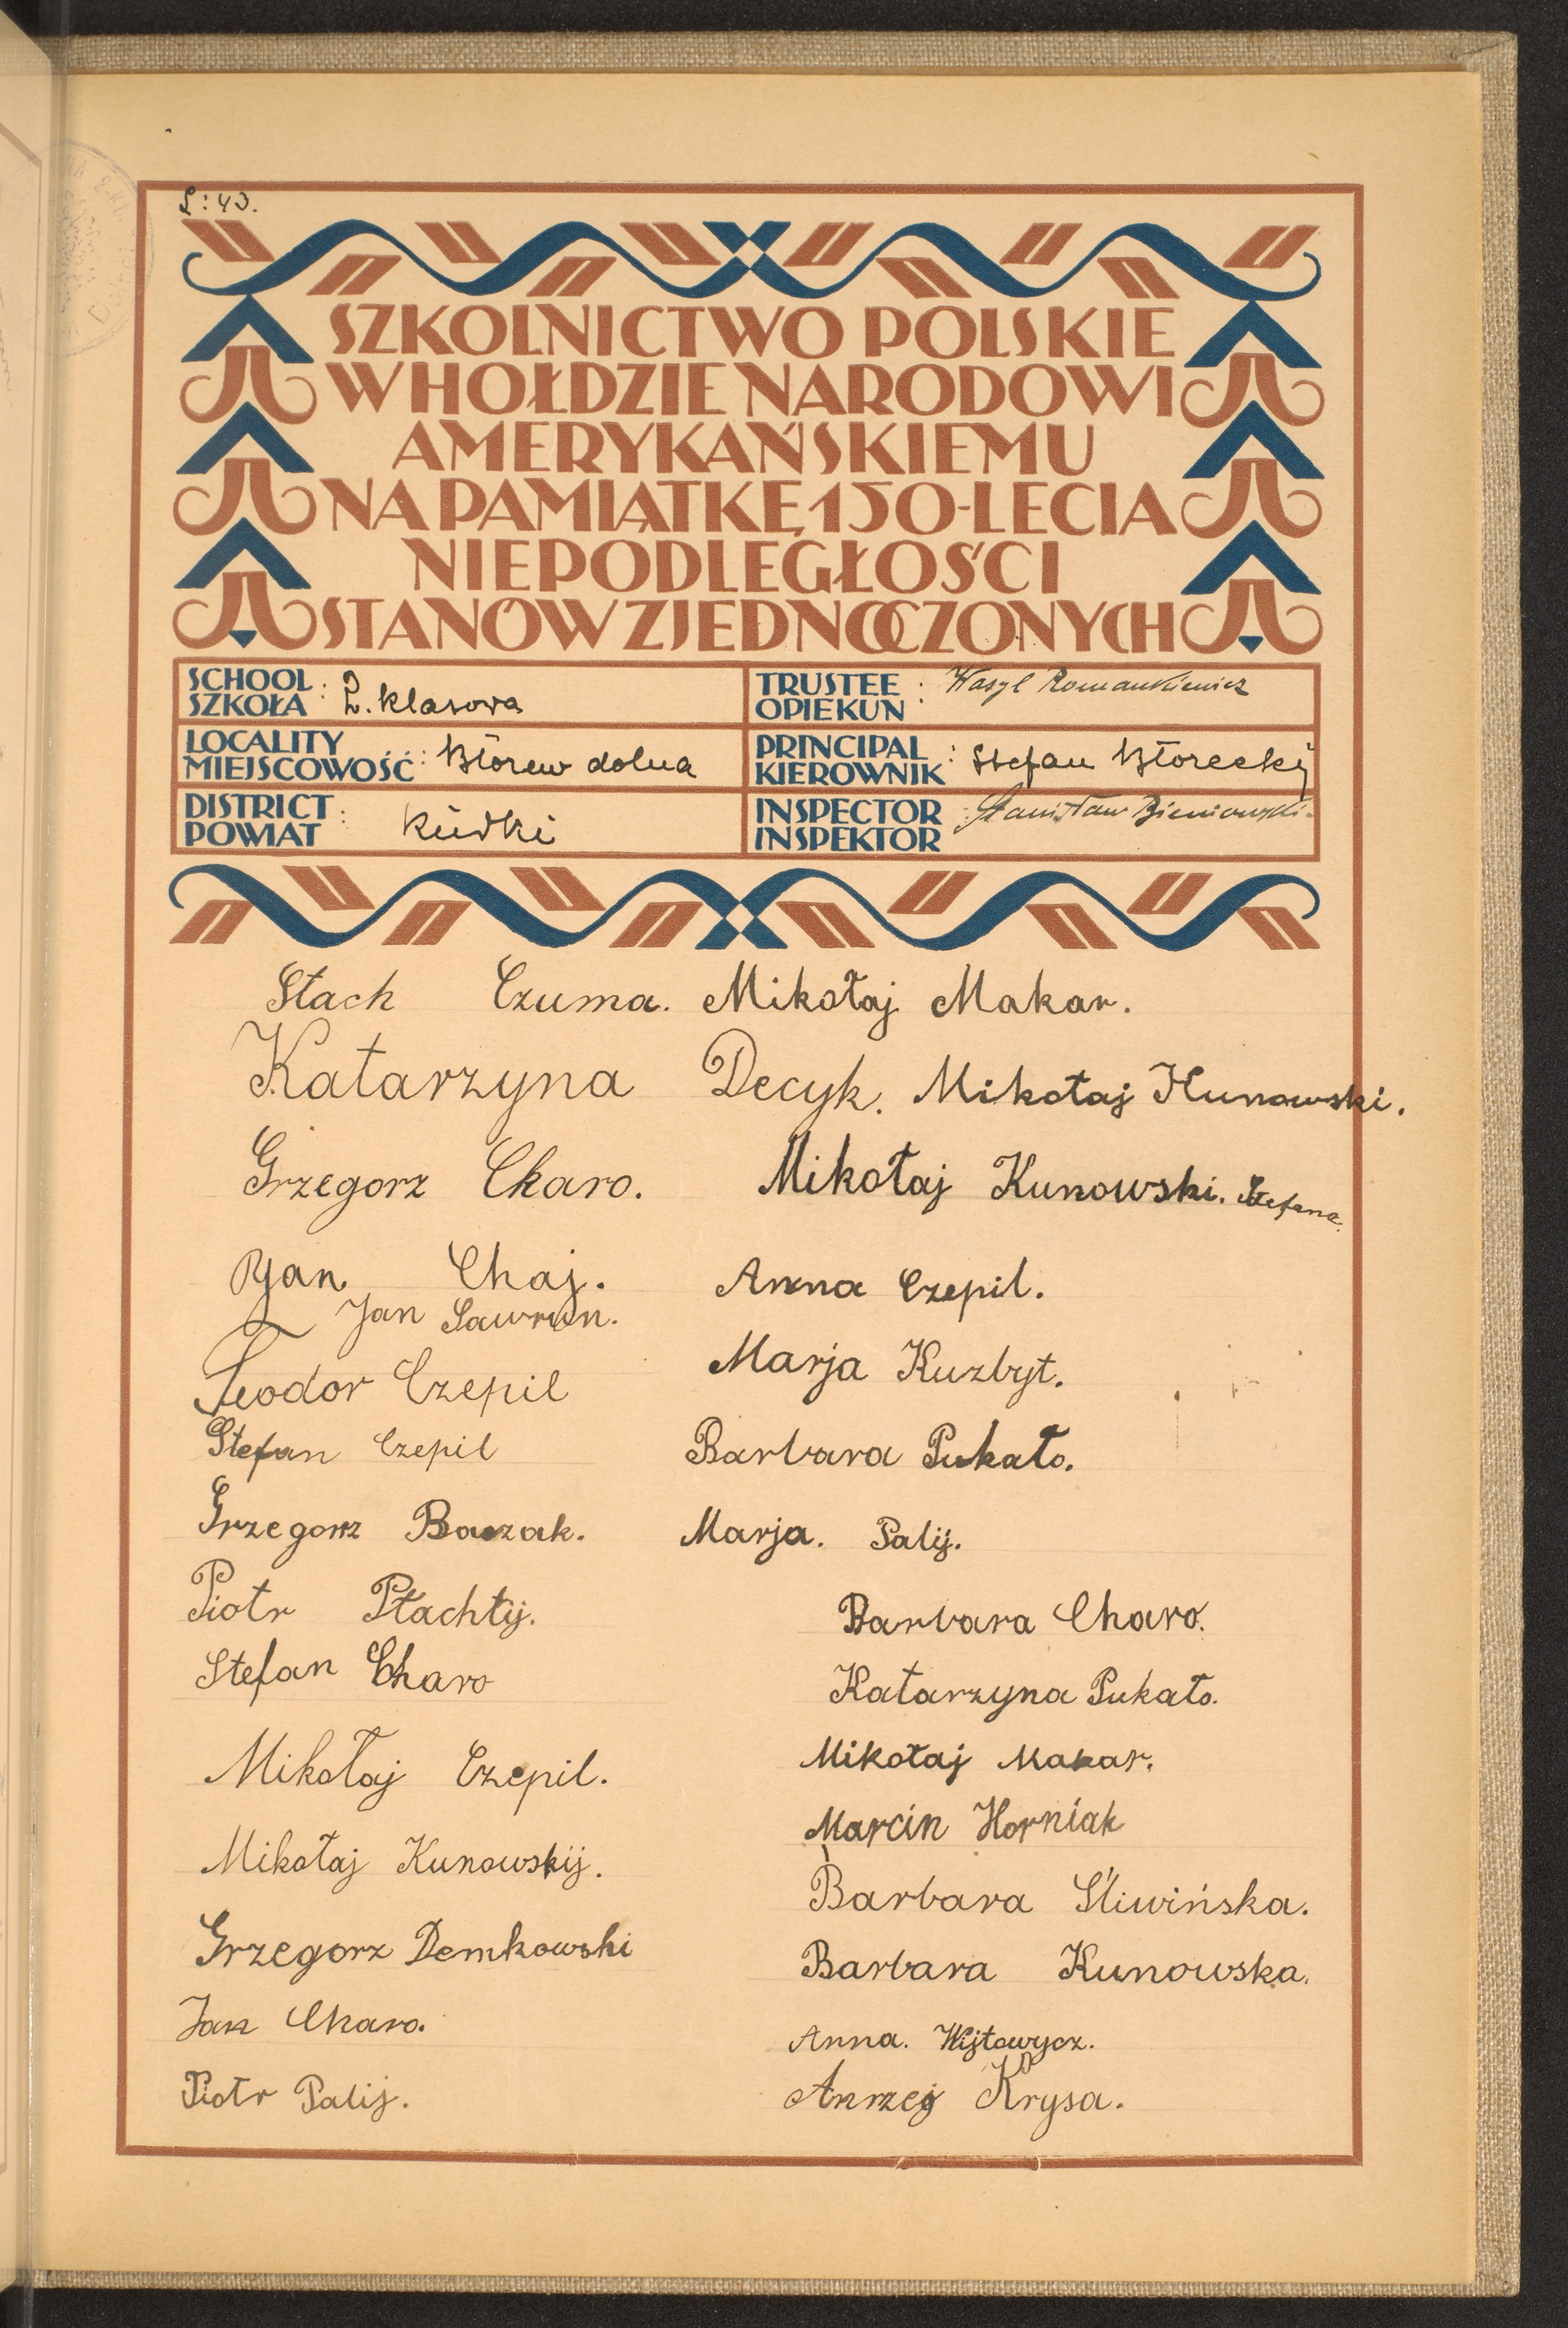 L: 43.
SZKOLNICTWO POLSKIE
W HOŁDZIE NARODOWI
AMERYKAŃSKIEMU
NA PAMIĄTKĘ 150-LECIA
NIEPODLEGŁOŚCI
STANÓW ZJEDNOCZONYCH
SCHOOL
SZKOŁA : 2. klasowa
TRUSTEE
OPIEKUN : Wasyl Romankiewicz
LOCALITY
MIEJSCOWOŚĆ : dolna
PRINCIPAL
KIEROWNIK : Stefan
DISTRICT
POWIAT :
INSPECTOR
INSPEKTOR : Stanisław Bieniowski.
Stach Czuma. Mikołaj Makar.
Katarzyna Decyk. Mikołaj Kunowski.
Grzegorz Charo. Mikołaj Kunowski. Stefana.
Jan Chaj. Anna Czepil.
Jan Sawrun.
Teodor Czepil Marja Kuzbyt.
Stefan Czepil Barbara Pukało.
Grzegorz Baczak. Marja. Palij.
Piotr Płachtij. Barbara Charo.
Stefan Charo Katarzyna Pukało.
Mikołaj Czepil. Mikołaj Makar.
Mikołaj Kunowskij. Marcin Horniak
Barbara Śliwińska.
Grzegorz Demkowski Barbara Kunowska.
Jan Charo. Anna. Wijtowycz.
Piotr Palij. Anrzej Krysa.